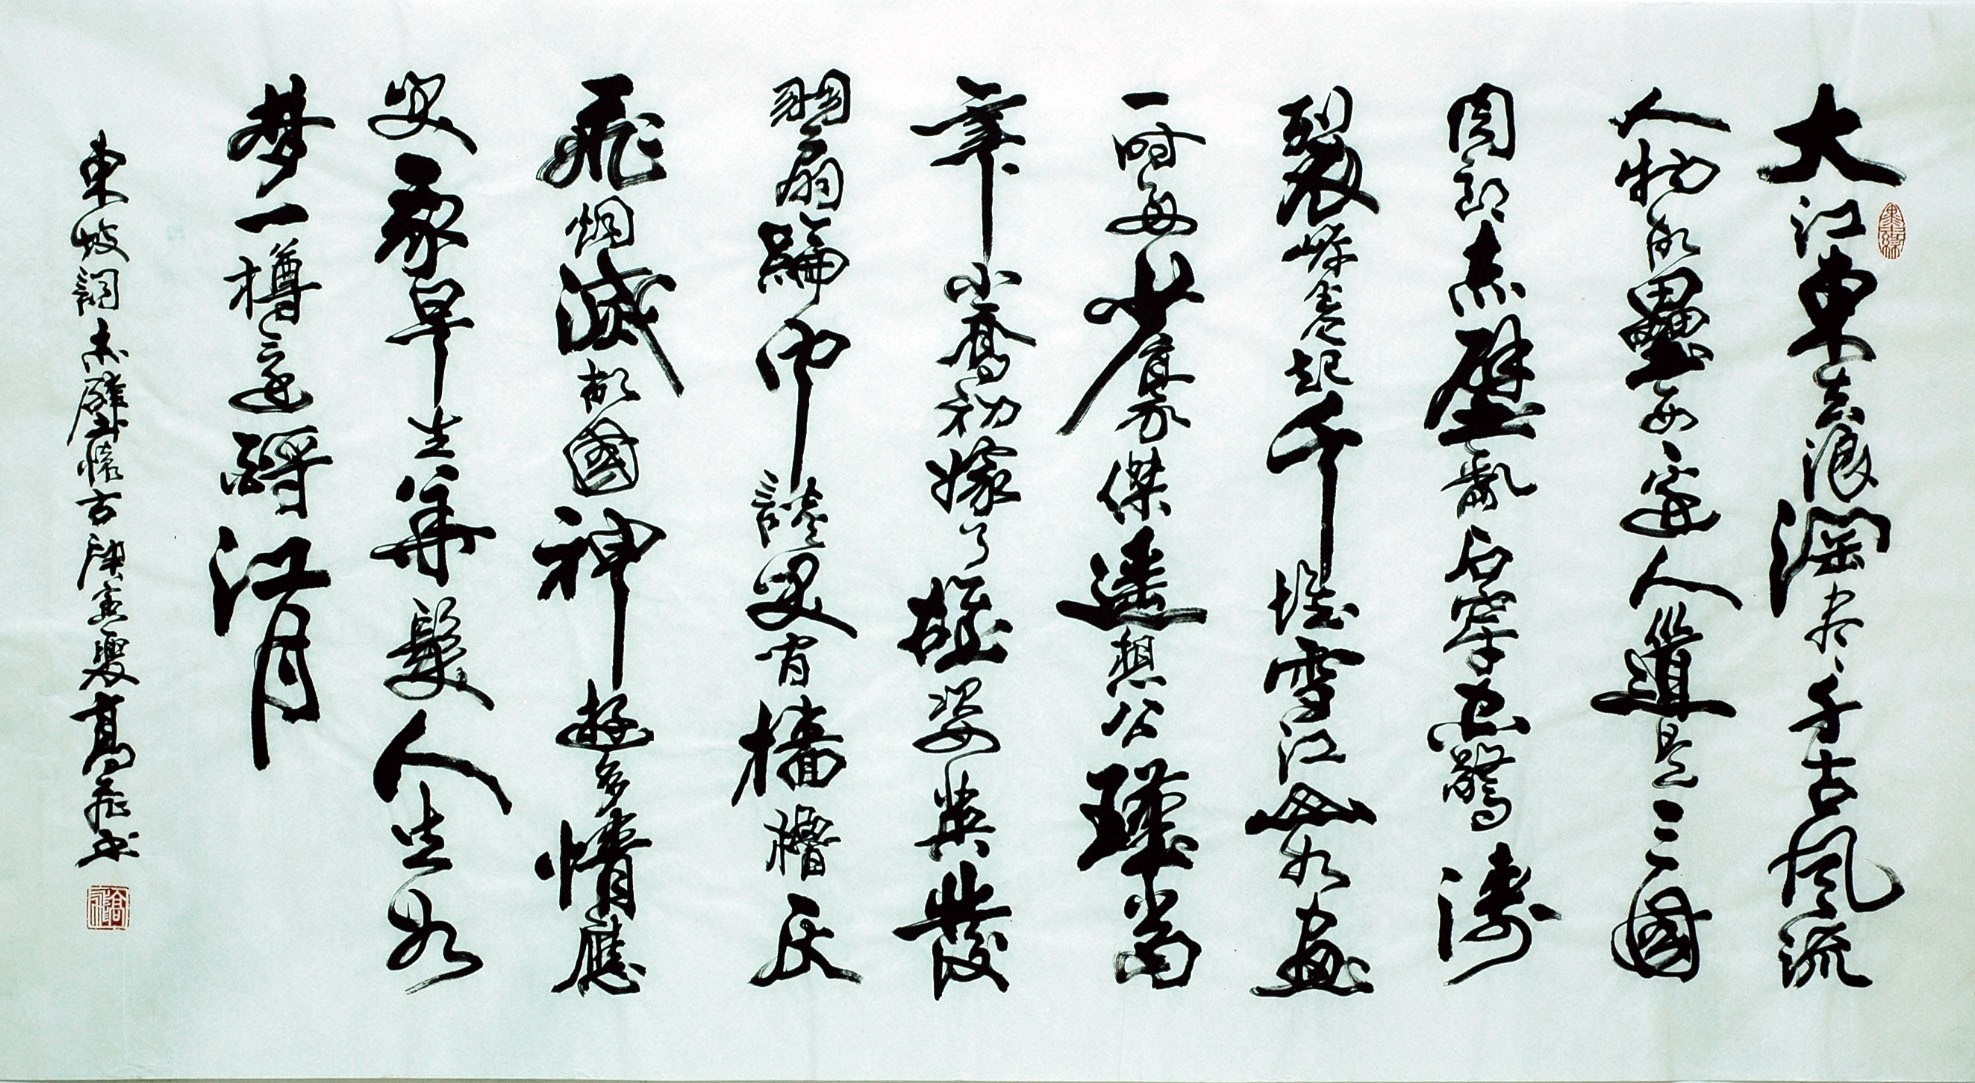 大江東去浪淘尽千古風流
人物故壘西邊人道是三國
周郎赤壁亂石穿空驚濤
裂岸卷起千堆雪江山如畫
一時多少豪傑遙想公瑾當
年小喬初嫁了雄姿英發
羽扇綸巾談笑間檣櫓灰
飛烟滅故國神遊多情應
笑我早生華髮人生如
梦一樽還酹江月
東坡詞赤壁懷古庚寅夏高飛书